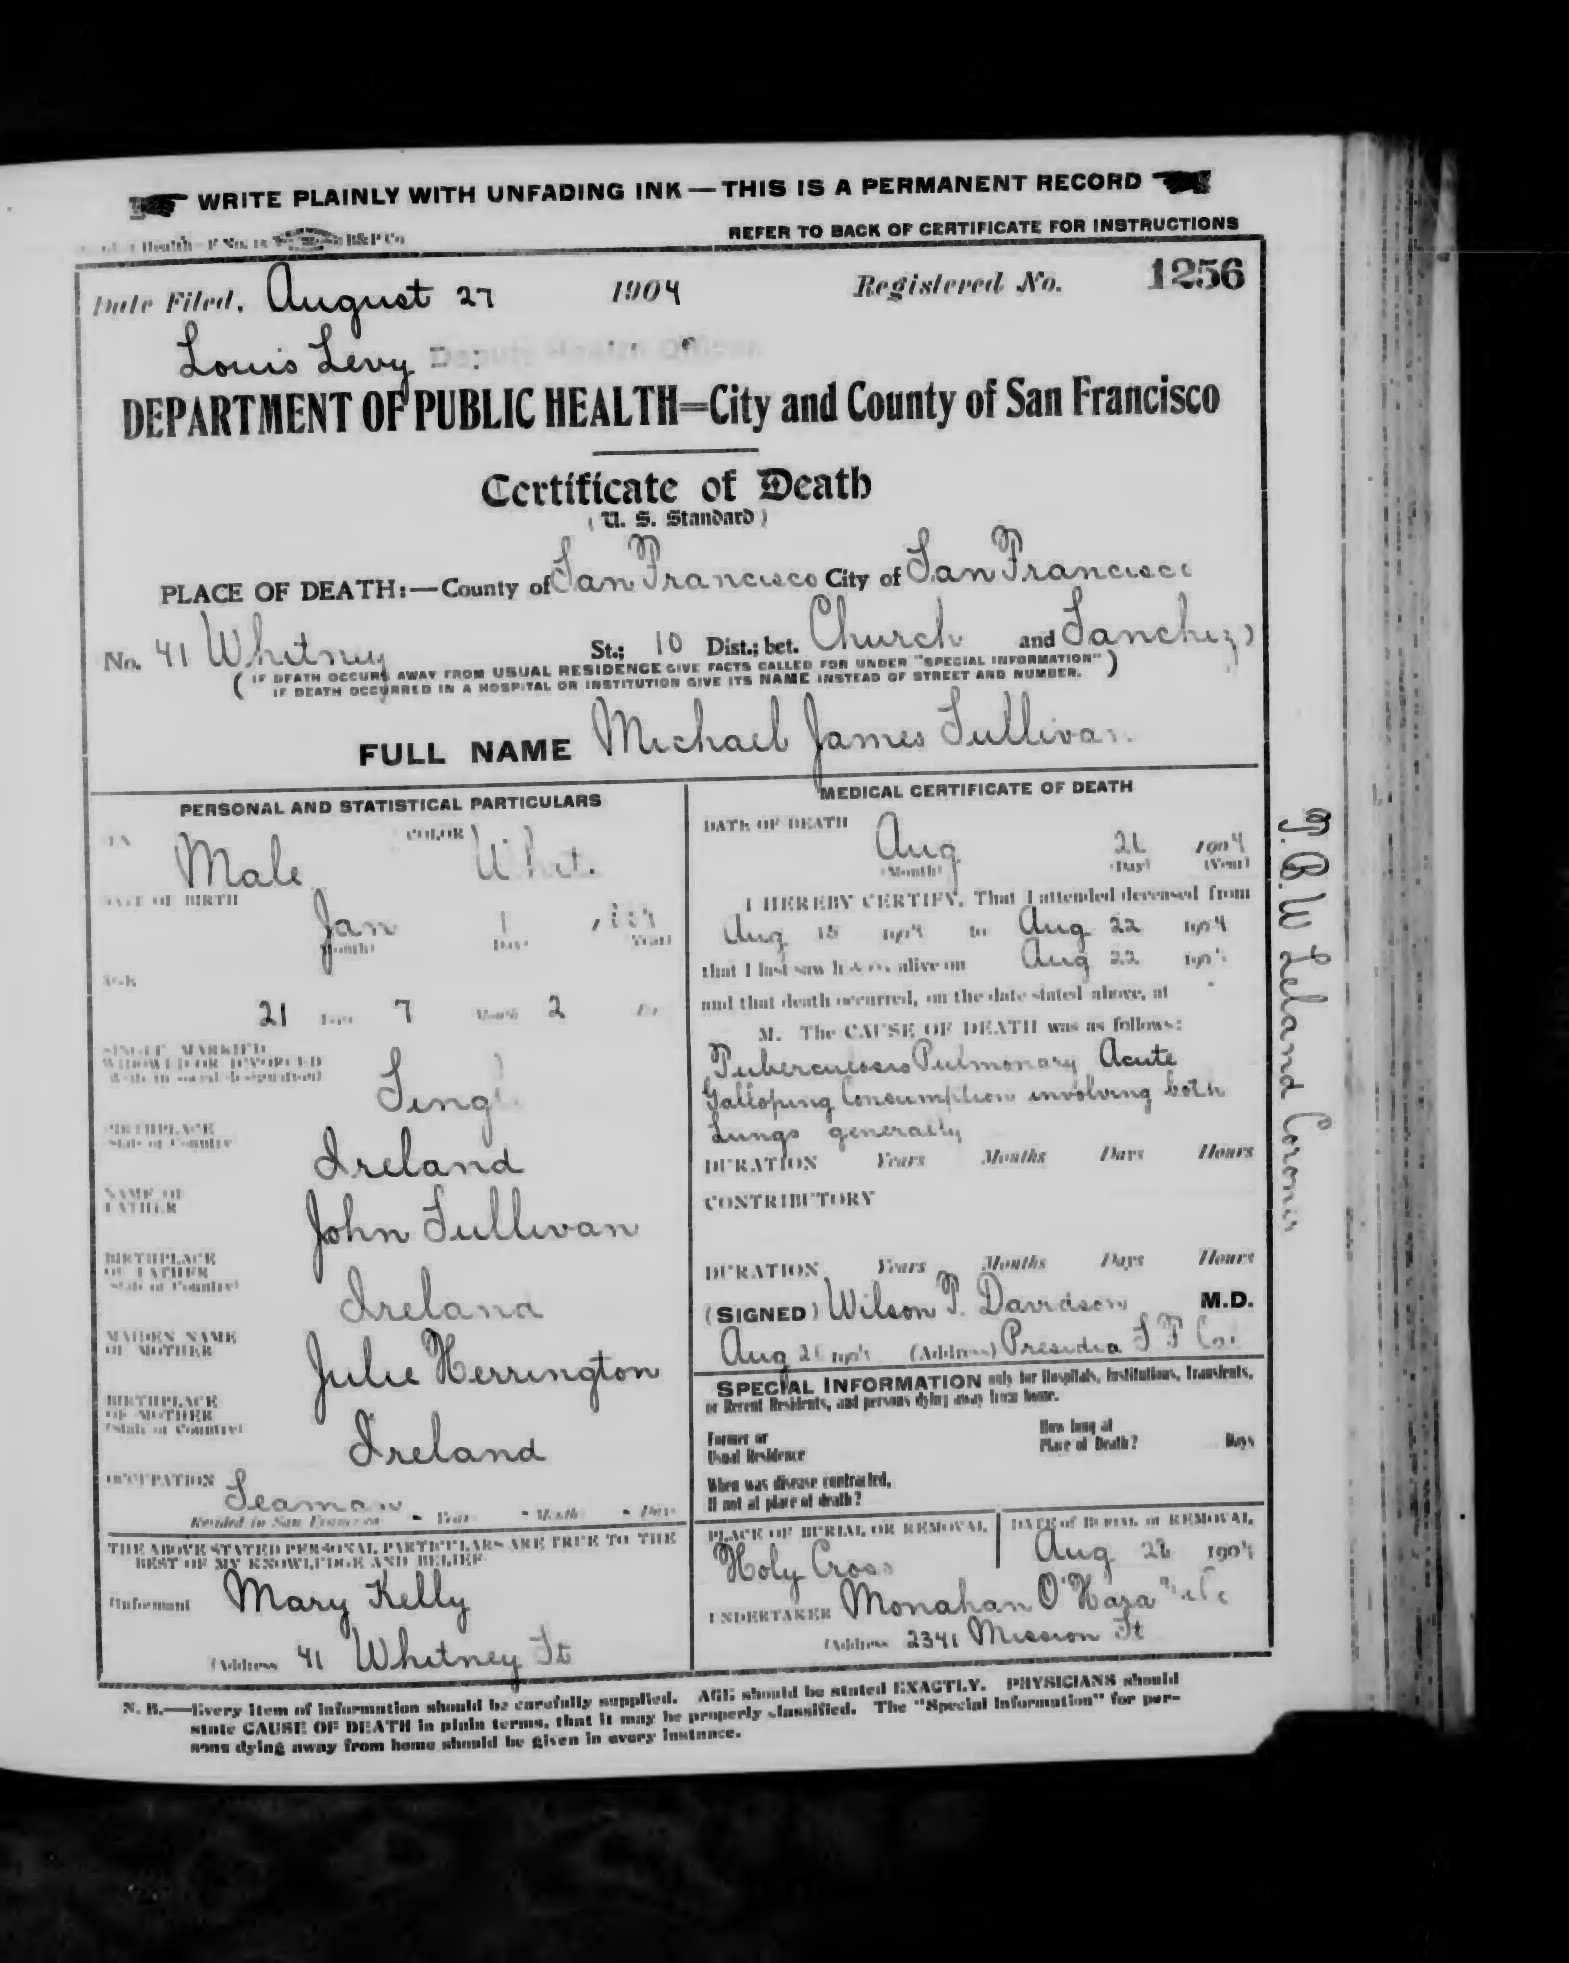 WRITE PLAINLY WITH UNFADING INK — THIS IS A PERMANENT RECORD
Health - F No. B&P Co
REFER TO BACK OF CERTIFICATE FOR INSTRUCTIONS
Date Filed, August 27 1904 Registered No. 1256
Louis Levy Deputy Health Officer
DEPARTMENT OF PUBLIC HEALTH=City and County of San Francisco
Certificate of Death
(U. S. Standard)
PLACE OF DEATH:—County of San Francisco City of San Francisco
No. 41 Whitney St.; 10 Dist.; bet. Church and Sanchez)
(IF DEATH OCCURS AWAY FROM USUAL RESIDENCE GIVE FACTS CALLED FOR UNDER "SPECIAL INFORMATION"
IF DEATH OCCURRED IN A HOSPITAL OR INSTITUTION GIVE ITS NAME INSTEAD OF STREET AND NUMBER.)
FULL NAME Michael James Sullivan
PERSONAL AND STATISTICAL PARTICULARS
Male COLOR Whit.
DATE OF BIRTH
Jan 1
(Month) (Day) (Year)
AGE
21 Years 7 Months 2
SINGLE, MARRIED,
WIDOWED OR DIVORCED
(Write in social designation)
Sing
BIRTHPLACE
(State or Country)
Ireland
NAME OF
FATHER
John Sullivan
BIRTHPLACE
OF FATHER
(State or Country)
Ireland
MAIDEN NAME
OF MOTHER
Julie Herrington
BIRTHPLACE
OF MOTHER
(State or Country)
Ireland
OCCUPATION Seaman
Resided in San Francisco - Years - Months - Days
THE ABOVE STATED PERSONAL PARTICULARS ARE TRUE TO THE
BEST OF MY KNOWLEDGE AND BELIEF
(Informant Mary Kelly
(Address 41 Whitney St
MEDICAL CERTIFICATE OF DEATH
DATE OF DEATH
Aug 1904
(Month) (Day) (Year)
I HEREBY CERTIFY, That I attended deceased from
Aug 15 1904 to Aug 22 1904
that I last saw h alive on Aug 22 1904
and that death occurred, on the date stated above, at
M. The CAUSE OF DEATH was as follows:
Tuberculosis Pulmonary Acute
Galloping Consumption involving both
Lungs generally
DURATION Years Months Days Hours
CONTRIBUTORY
DURATION Years Months Days Hours
(SIGNED) Wilson P. Davidson M.D.
Aug 1904 (Address) Presidia S F Cal
SPECIAL INFORMATION only for Hospitals, Institutions, Transients,
or Recent Residents, and persons dying away from home.
Former or
Usual Residence
How long at
Place of Death? Days
When was disease contracted,
If not at place of death?
PLACE OF BURIAL OR REMOVAL
Holy Cross
DATE of BURIAL or REMOVAL
Aug 1904
UNDERTAKER Monahan O'Hara & Co
(Address 2341 Mission St
N. B.—Every item of information should be carefully supplied. AGE should be stated EXACTLY. PHYSICIANS should
state CAUSE OF DEATH in plain terms, that it may be properly classified. The "Special Information" for per-
sons dying away from home should be given in every instance.
T. B. W Leland Coroner